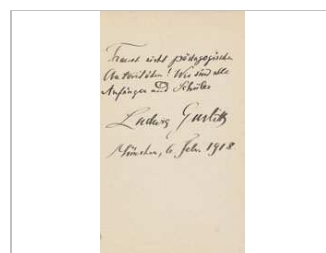 Trauet nicht pädagogischen
Autoritäten! Wir sind alle
Anfänger und Schüler
Ludwig Gurlitt
München, 6. Febr. 1918